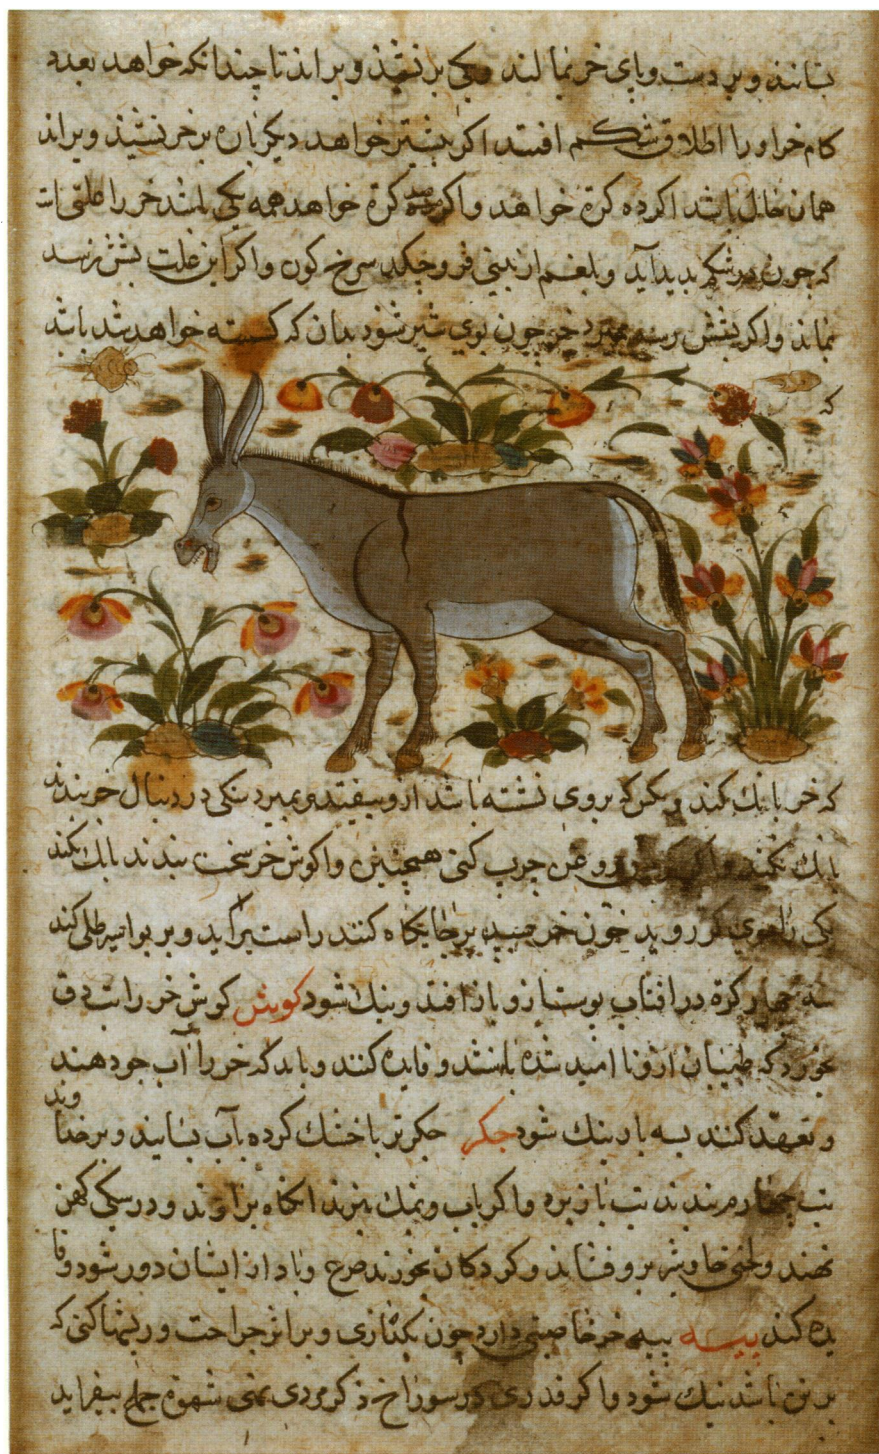 بستانند و بر دست و پای خر بمالند و یکی بر نشیند و براند تا چندانکه خواهد بعدد
کام خر او را اطلاق شکم افتد اکر بیشتر خواهد دیکر باره بر خر نشیند و براند
همان حال باشد اکر ده کرة خواهد و اکر کرة خواهد همه یکی باشد خر را علتی است
که چون در شکم بدید آید و بلغم از بینی فرو چکد سرخ کون و اکر این علت بشش نرسد
نماند و اکر بشش رسد بمیرد خر چون بوی شیر شود بدان که کسسته خواهد شد باشد
که
که خر بانك کند و بکس که بروی نشسته باشد ازو بیفتد بمیرد سنکی در دنبال خر بندند
بانك نکند و اکر روغن چرب کنی همچنین و اکوش خر سخت ببندند بانك نکند
یکی را موی کژ روید خون خر بر جایکاه کنند راست برآید و بر بواسیر طلی کند
سه چهار کرة در افتاب بوست ازو باز افتد و نیك شود کوش کوش خر را تب دق
بخورد که طبیبان ازو نا امید شده باشند و فایده کنند و باید که خر را آب جو دهند
و تعهد کنند بسه بار نیك شود جکر جکر تر یا خشك کرده بآب بسایند و بر خداوند
تب چهارم بندند تب باز برد و اکر باب و نمك بپزند انکاه براوند و در سبکی کهن
نهند و لختی جاوشیر برو فشاند و کودکان بخورند صرع و باد از ایشان دور شود و فا
یده کند پیه پیه خر خاصیتی دارد چون بکدازی و بر اثر جراحت و ریشها کنی که
بر تن باشد نیك شود و اکر قدری در سوراخ ذکر مردی نهی شهوة جماع بیفزاید